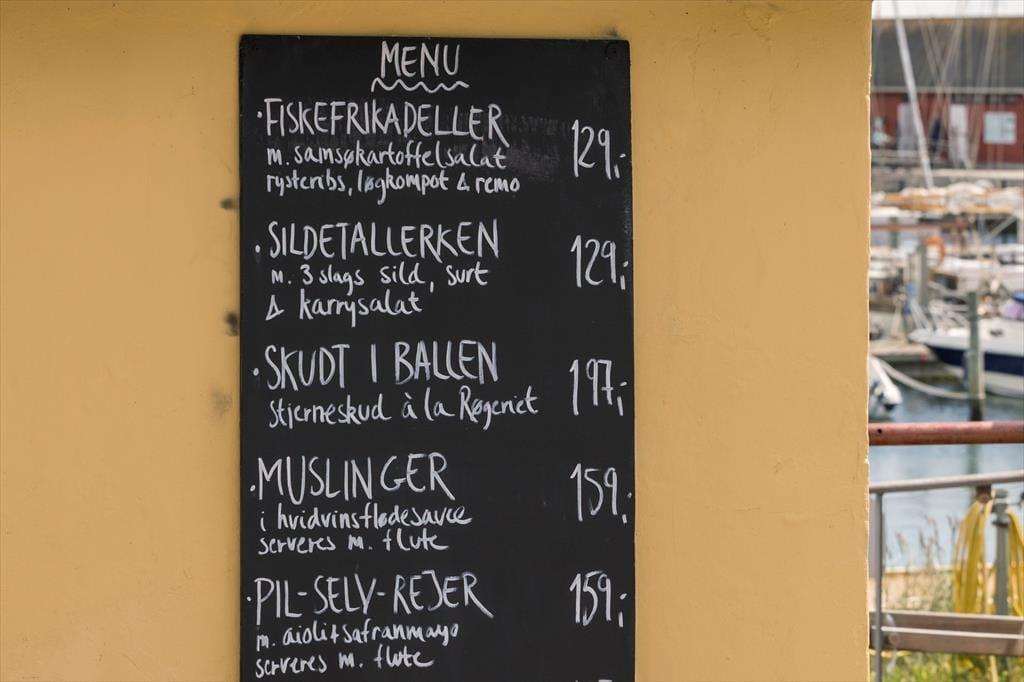 MENU
· FISKEFRIKADELLER 129,-
m. samsøkartoffelsalat
rysteribs, løgkompot & remo
· SILDETALLERKEN 129,-
m. 3 slags sild, surt
& karrysalat
· SKUDT I BALLEN 197,-
Stjerneskud à la Røgeriet
· MUSLINGER 159,-
i hvidvinsflødesauce
serveres m. flute
· PIL-SELV-REJER 159,-
m. aioli + safranmayo
serveres m. flute